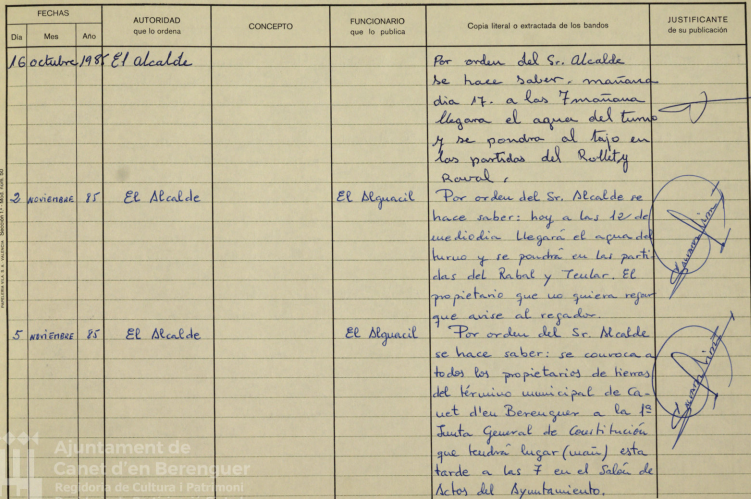 FECHAS
Día Mes Año
AUTORIDAD
que lo ordena
CONCEPTO
FUNCIONARIO
que lo publica
Copia literal o extractada de los bandos
JUSTIFICANTE
de su publicación
16 octubre 1985 El alcalde
Por orden del Sr. Alcalde
se hace saber. mañana
dia 17. a las 7 mañana
llegara el agua del turno
y se pondra al tajo en
las partidas del Rollet y
Raval.
2 NOVIEMBRE 85 El Alcalde El Alguacil
Por orden del Sr. Alcalde se
hace saber: hoy a las 12 de
mediodia llegará el agua del
turno y se pondrá en las parti
das del Rabal y Teular. El
propietario que no quiera regar
que avise al regador.
5 NOVIEMBRE 85 El Alcalde El Alguacil
Por orden del Sr. Alcalde
se hace saber: se convoca a
todos los propietarios de tierras
del término municipal de Ca-
net d'en Berenguer a la 1ª
Junta General de Constitución
que tendrá lugar (mañ) esta
tarde a las 7 en el Salón de
Actos del Ayuntamiento.
Ajuntament de
Canet d'en Berenguer
Regidoria de Cultura i Patrimoni